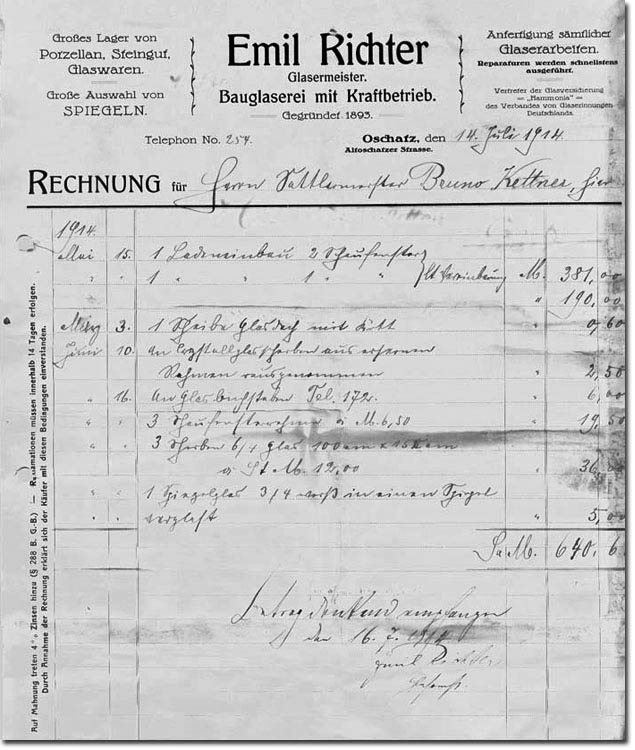 Großes Lager von
Porzellan, Steingut,
Glaswaren.
Große Auswahl von
SPIEGELN.
Emil Richter
Glasermeister.
Bauglaserei mit Kraftbetrieb.
Gegründet 1893.
Anfertigung sämtlicher
Glaserarbeiten.
Reparaturen werden schnellstens
ausgeführt.
Vertreter der Glasversicherung
— „Hammonia“ —
des Verbandes von Glaserinnungen
Deutschlands.
Telephon No. 254.
Oschatz, den 14. Juli 1914.
Altoschatzer Strasse.
RECHNUNG für Herrn Sattlermeister Bruno Kettner, hier
1914.
Mai 15. 1 Ladeneinbau 2 Schaufenster
" " 1 " " 1 " " lt Vereinbarung M. 381,00
" 190,00
März 3. 1 Scheibe Glasdach mit Kitt " 0,60
Juni 10. An Crystallglasscheiben aus
Rahmen rausgenommen " 2,50
" 16. An Glasbuchstaben Tel. 172. " 6,00
" " 3 Schaufensterrahmen a M. 6,50 " 19,50
" " 3 Scheiben 6/4 Glas 100 cm x cm
a St M. 12,00 " 36,00
" " 1 Spiegelglas 3/4 weiß in einen Spiegel
" verglast " 5,00
Sa M. 640,6
Betrag dankend empfangen
den 16. 7. 1914
Emil Richter
Auf Mahnung treten 4% Zinsen hinzu (§ 288 B. G.-B.) — Reklamationen müssen innerhalb 14 Tagen erfolgen.
Durch Annahme der Rechnung erklärt sich der Käufer mit diesen Bedingungen einverstanden.